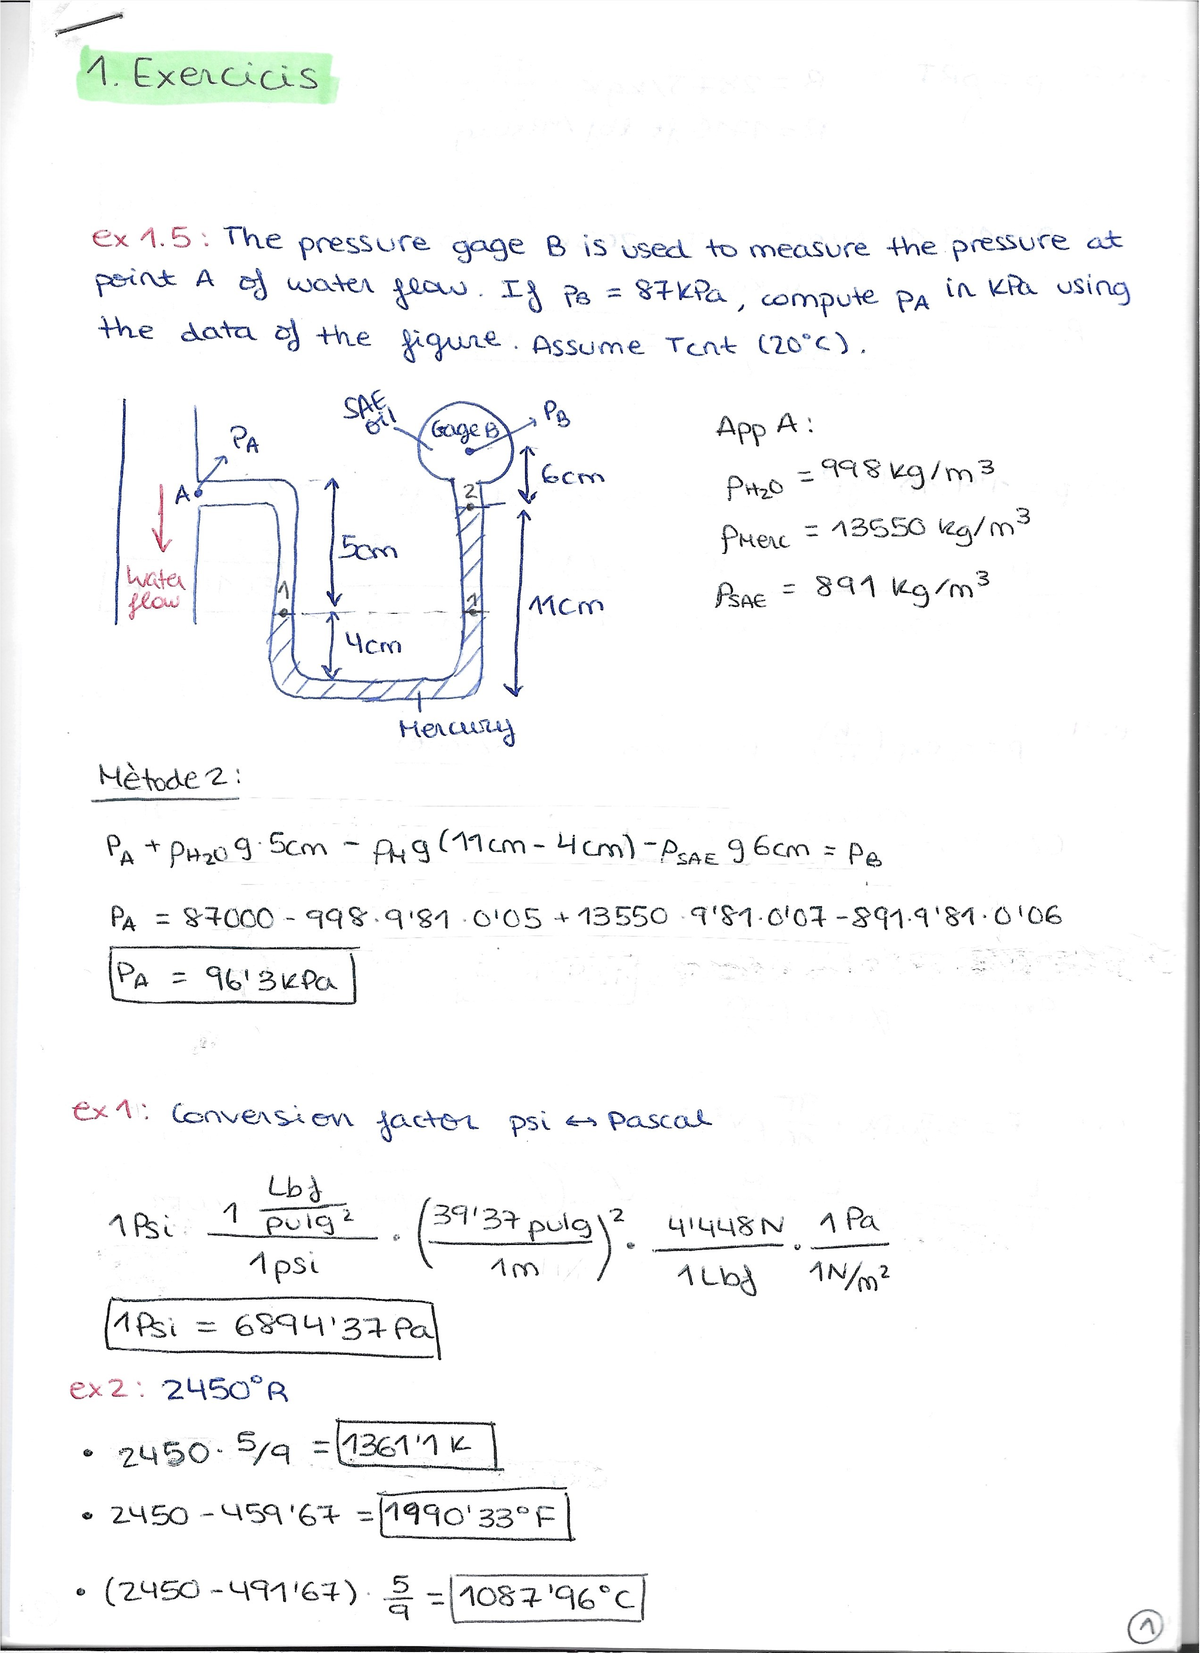 1. Exercicis
ex 1.5: The pressure gage B is used to measure the pressure at
point A of water flow. If PB = 87kPa, compute PA in kPa using
the data of the figure. Assume Tcnt (20°C).
SAE
oil
Gage B
PB
PA
A
6cm
2
5cm
1
1
11cm
4cm
Water
flow
Mercury
App A:
ρH2O = 998 kg/m3
ρMerc = 13550 kg/m3
ρSAE = 891 kg/m3
Mètode 2:
PA + ρH2O g·5cm - ρM g (11cm - 4cm) - ρSAE g 6cm = PB
PA = 87000 - 998·9'81·0'05 + 13550·9'81·0'07 - 891·9'81·0'06
PA = 96'3 kPa
ex 1: Conversion factor psi ↔ Pascal
1 Psi · 1 Lbf/pulg2 / 1 psi · (39'37 pulg / 1m)2 · 4'448N / 1 Lbf · 1 Pa / 1N/m2
1 Psi = 6894'37 Pa
ex 2: 2450°R
• 2450 · 5/9 = 1361'1 K
• 2450 - 459'67 = 1990'33°F
• (2450 - 491'67) · 5/9 = 1087'96°C
1